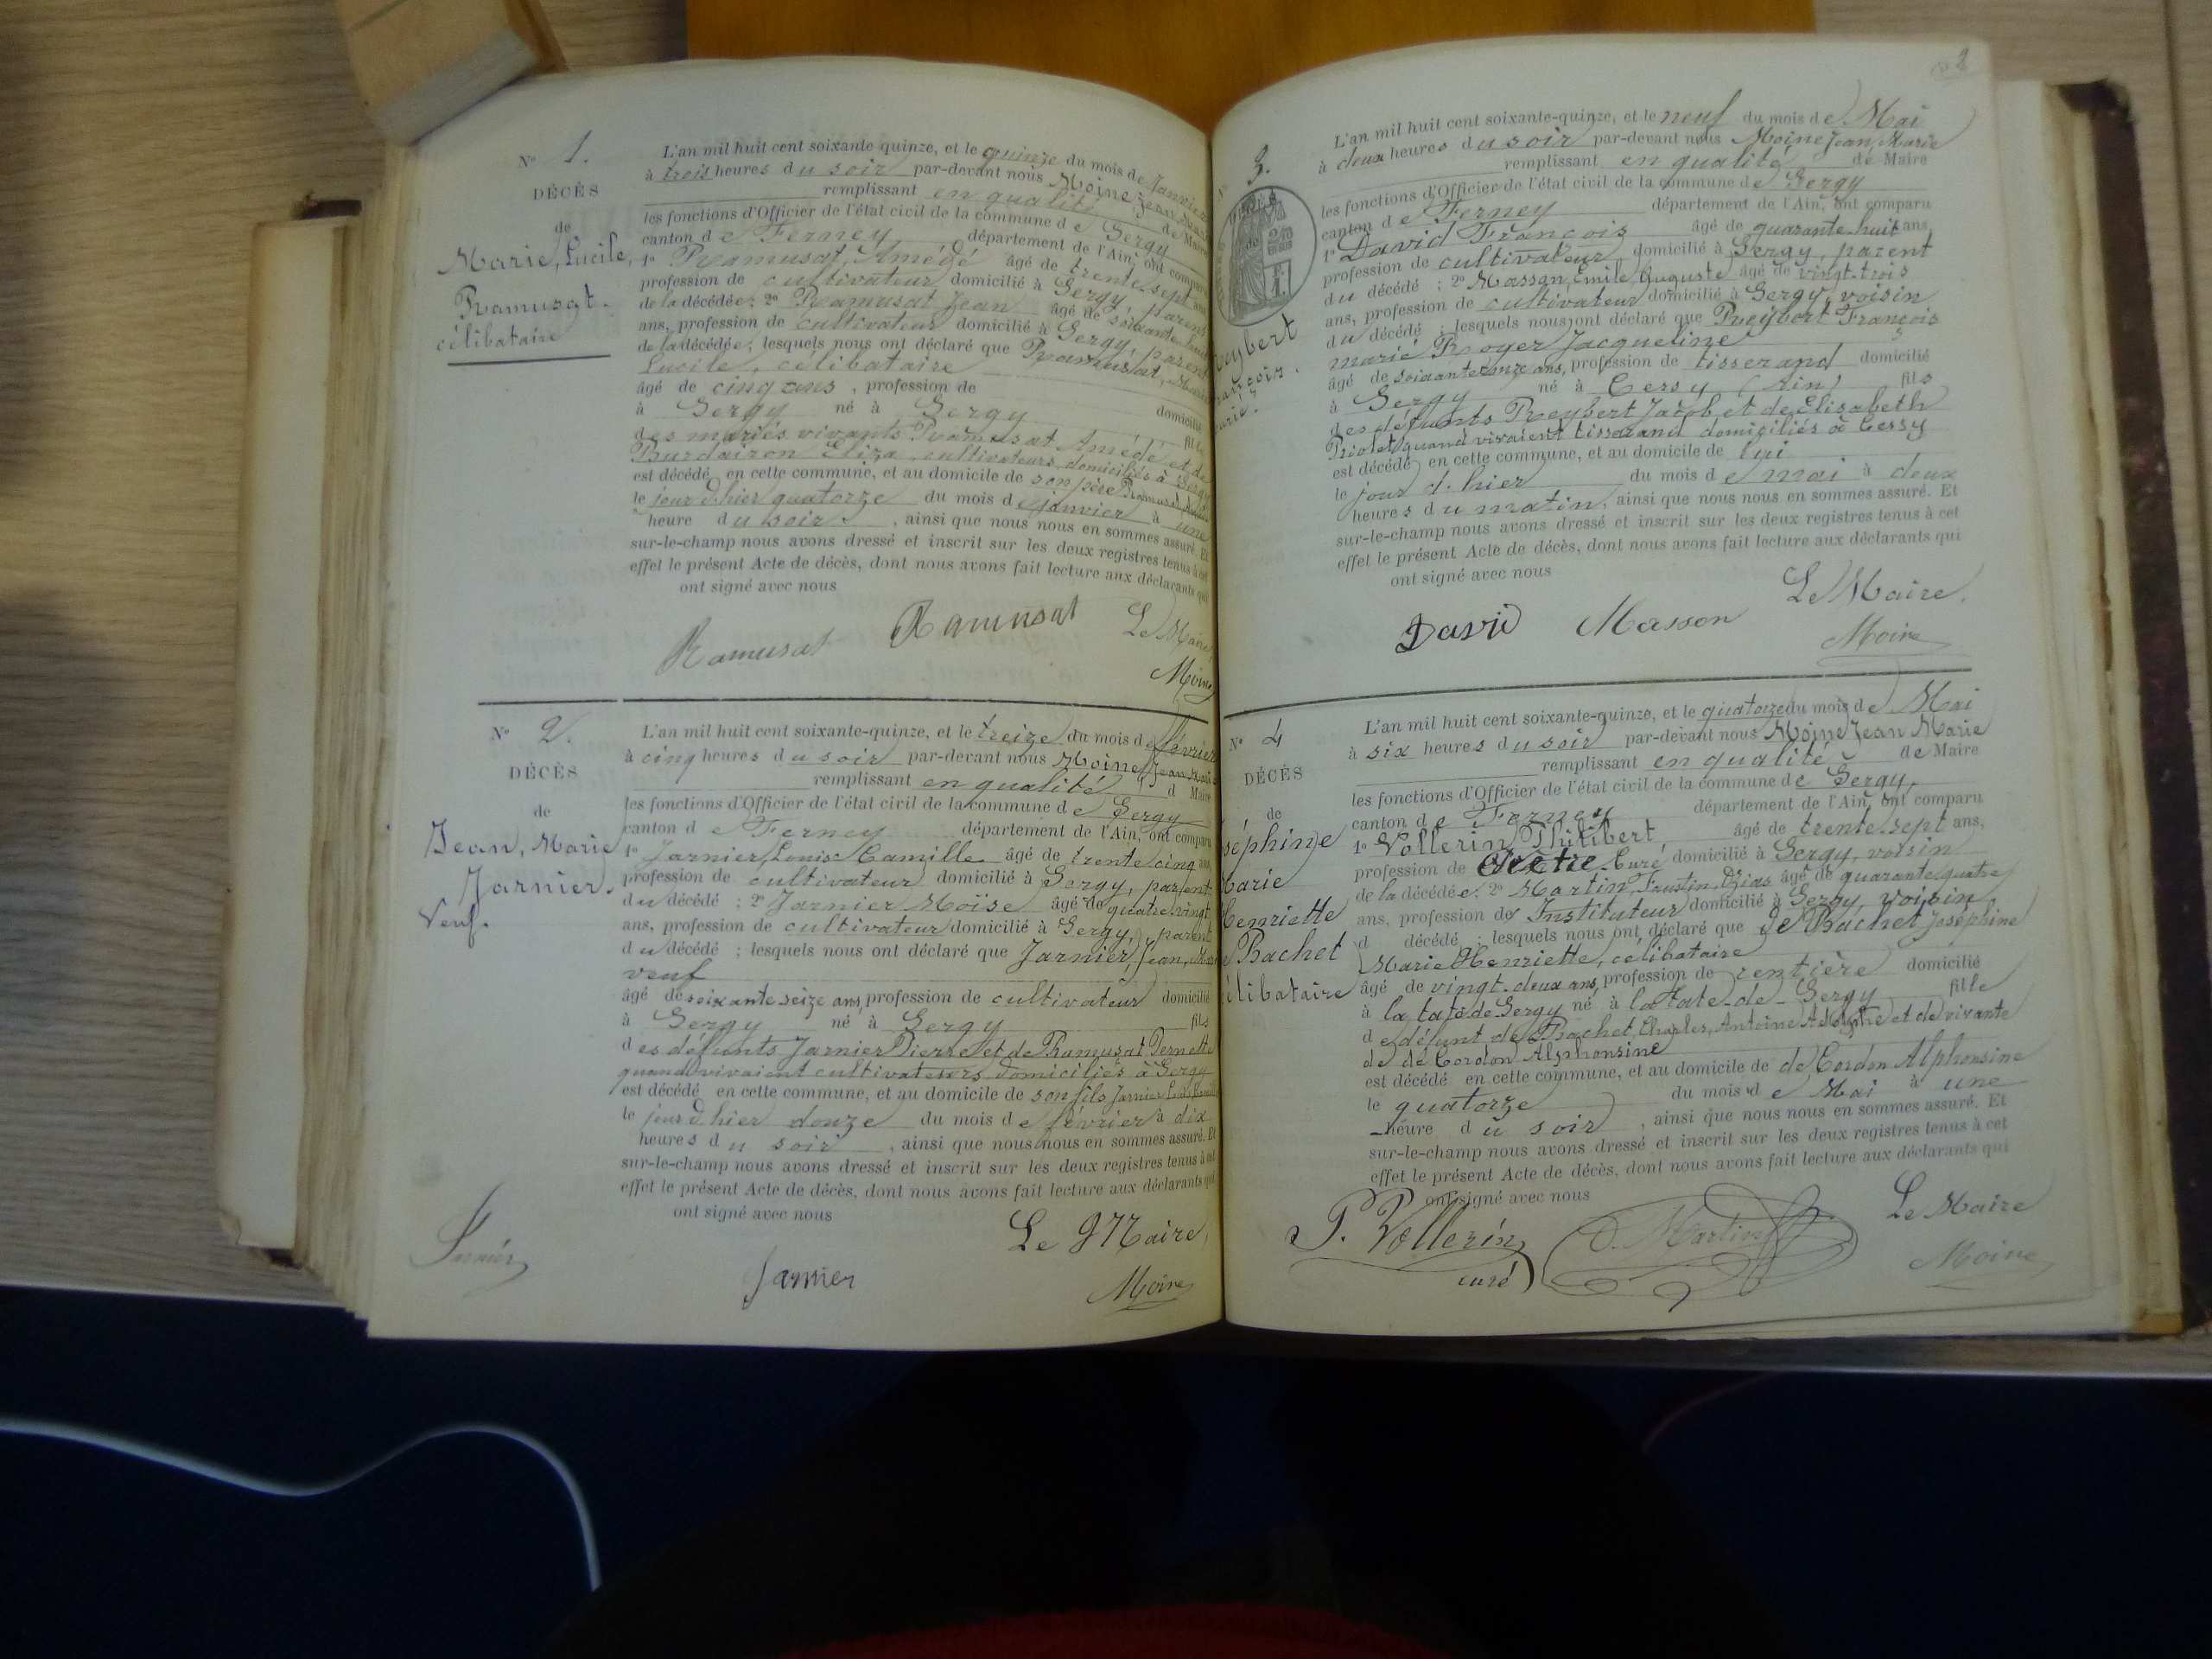 N° 1.
DÉCÈS
de
Marie, Lucile,
Ramusat.
célibataire
L'an mil huit cent soixante quinze, et le quinze du mois de Janvier
à trois heures du soir par-devant nous Moine Jean Marie
remplissant en qualité de Maire
les fonctions d'Officier de l'état civil de la commune de Sergy
canton de Ferney département de l'Ain, ont comparu
1° Ramusat, Amédé âgé de trente sept ans
profession de cultivateur domicilié à Sergy, parent
de la décédée; 2° Ramusat Jean âgé de soixante huit
ans, profession de cultivateur domicilié à Sergy, parent
de la décédée; lesquels nous ont déclaré que Ramusat, Marie
Lucile, célibataire
âgé de cinq ans, profession de domicilié
à Sergy né à Sergy fille
des mariés vivants Ramusat Amédé et de
Burdairon Eliza cultivateurs domiciliés à Sergy
est décédé en cette commune, et au domicile de son père Ramusat
le jour d'hier quatorze du mois de janvier à une
heure du soir, ainsi que nous nous en sommes assuré. Et
sur-le-champ nous avons dressé et inscrit sur les deux registres tenus à cet
effet le présent Acte de décès, dont nous avons fait lecture aux déclarants qui
ont signé avec nous
Ramusat Ramusat Le Maire,
Moine
N° 2.
DÉCÈS
de
Jean, Marie
Jarnier.
Veuf.
L'an mil huit cent soixante-quinze, et le treize du mois de février
à cinq heures du soir par-devant nous Moine, Jean Marie
remplissant en qualité d Maire
les fonctions d'Officier de l'état civil de la commune de Sergy
canton de Ferney département de l'Ain, ont comparu
1° Jarnier, Louis Camille âgé de trente cinq ans
profession de cultivateur domicilié à Sergy, parent
du décédé; 2° Jarnier Moïse âgé de quatre-vingt
ans, profession de cultivateur domicilié à Sergy, parent
du décédé; lesquels nous ont déclaré que Jarnier, Jean, Marie
veuf
âgé de soixante seize ans, profession de cultivateur domicilié
à Sergy né à Sergy fils
des défunts Jarnier Pierre et de Ramusat Pernette
quand vivaient cultivateurs domiciliés à Sergy
est décédé en cette commune, et au domicile de son fils Jarnier Louis Camille
le jour d'hier douze du mois de février à dix
heures du soir, ainsi que nous nous en sommes assuré. Et
sur-le-champ nous avons dressé et inscrit sur les deux registres tenus à cet
effet le présent Acte de décès, dont nous avons fait lecture aux déclarants qui
ont signé avec nous
Le Maire,
Jarnier Jarnier Moine
2
3.
eybert
rançois.
arié.
L'an mil huit cent soixante-quinze, et le neuf du mois de Mai
à deux heures du soir par-devant nous Moine Jean Marie
remplissant en qualité de Maire
les fonctions d'Officier de l'état civil de la commune de Sergy
canton de Ferney département de l'Ain, ont comparu
1° David François âgé de quarante-huit ans,
profession de cultivateur domicilié à Sergy, parent
du décédé; 2° Masson, Emile, Auguste âgé de vingt-trois
ans, profession de cultivateur domicilié à Sergy, voisin
du décédé; lesquels nous ont déclaré que Reybert François
marié Royer Jacqueline
âgé de soixante-onze ans, profession de tisserand domicilié
à Sergy né à Cessy (Ain) fils
des défunts Reybert Jacob et de Elisabeth
Priolet quand vivaient tisserand domiciliés à Cessy
est décédé en cette commune, et au domicile de lui
le jour d'hier du mois de mai à deux
heures du matin, ainsi que nous nous en sommes assuré. Et
sur-le-champ nous avons dressé et inscrit sur les deux registres tenus à cet
effet le présent Acte de décès, dont nous avons fait lecture aux déclarants qui
ont signé avec nous
Le Maire.
David Masson Moine
N° 4
DÉCÈS
de
séphine
Marie
Henriette
e Bachet
élibataire
L'an mil huit cent soixante-quinze, et le quatorze du mois de Mai
à six heures du soir par-devant nous Moine Jean Marie
remplissant en qualité de Maire
les fonctions d'Officier de l'état civil de la commune de Sergy,
canton de Ferney département de l'Ain, ont comparu
1° Vollerin Philibert âgé de trente-sept ans,
profession de Curé domicilié à Sergy, voisin
de la décédée. 2° Martin, Faustin, Ozias âgé de quarante quatre
ans, profession de Instituteur domicilié à Sergy, voisin
d décédé; lesquels nous ont déclaré que de Bachet Joséphine
Marie Henriette, célibataire
âgé de vingt-deux ans, profession de rentière domicilié
à la tate de Sergy né à la Tate-de-Sergy fille
de défunt de Bachet, Charles, Antoine Adolphe et de vivante
de de Cordon Alphonsine
est décédé en cette commune, et au domicile de de Cordon Alphonsine
le quatorze du mois de Mai à une
heure du soir, ainsi que nous nous en sommes assuré. Et
sur-le-champ nous avons dressé et inscrit sur les deux registres tenus à cet
effet le présent Acte de décès, dont nous avons fait lecture aux déclarants qui
ont signé avec nous
Le Maire
P. Vollerin O. Martin Moine
curé